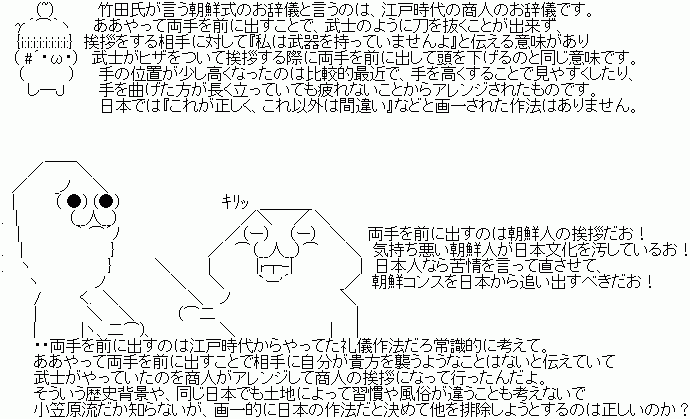 竹田氏が言う朝鮮式のお辞儀と言うのは、江戸時代の商人のお辞儀です。
ああやって両手を前に出すことで、武士のように刀を抜くことが出来ず、
挨拶をする相手に対して『私は武器を持っていませんよ』と伝える意味があり
武士がヒザをついて挨拶する際に両手を前に出して頭を下げるのと同じ意味です。
手の位置が少し高くなったのは比較的最近で、手を高くすることで見やすくしたり、
手を曲げた方が長く立っていても疲れないことからアレンジされたものです。
日本では『これが正しく、これ以外は間違い』などと画一された作法はありません。
キリッ
両手を前に出すのは朝鮮人の挨拶だお!
気持ち悪い朝鮮人が日本文化を汚しているお!
日本人なら苦情を言って直させて、
朝鮮コンスを日本から追い出すべきだお!
・・両手を前に出すのは江戸時代からやってた礼儀作法だろ常識的に考えて。
ああやって両手を前に出すことで相手に自分が貴方を襲うようなことはないと伝えていて
武士がやっていたのを商人がアレンジして商人の挨拶になって行ったんだよ。
そういう歴史背景や、同じ日本でも土地によって習慣や風俗が違うことも考えないで
小笠原流だか知らないが、画一的に日本の作法だと決めて他を排除しようとするのは正しいのか?